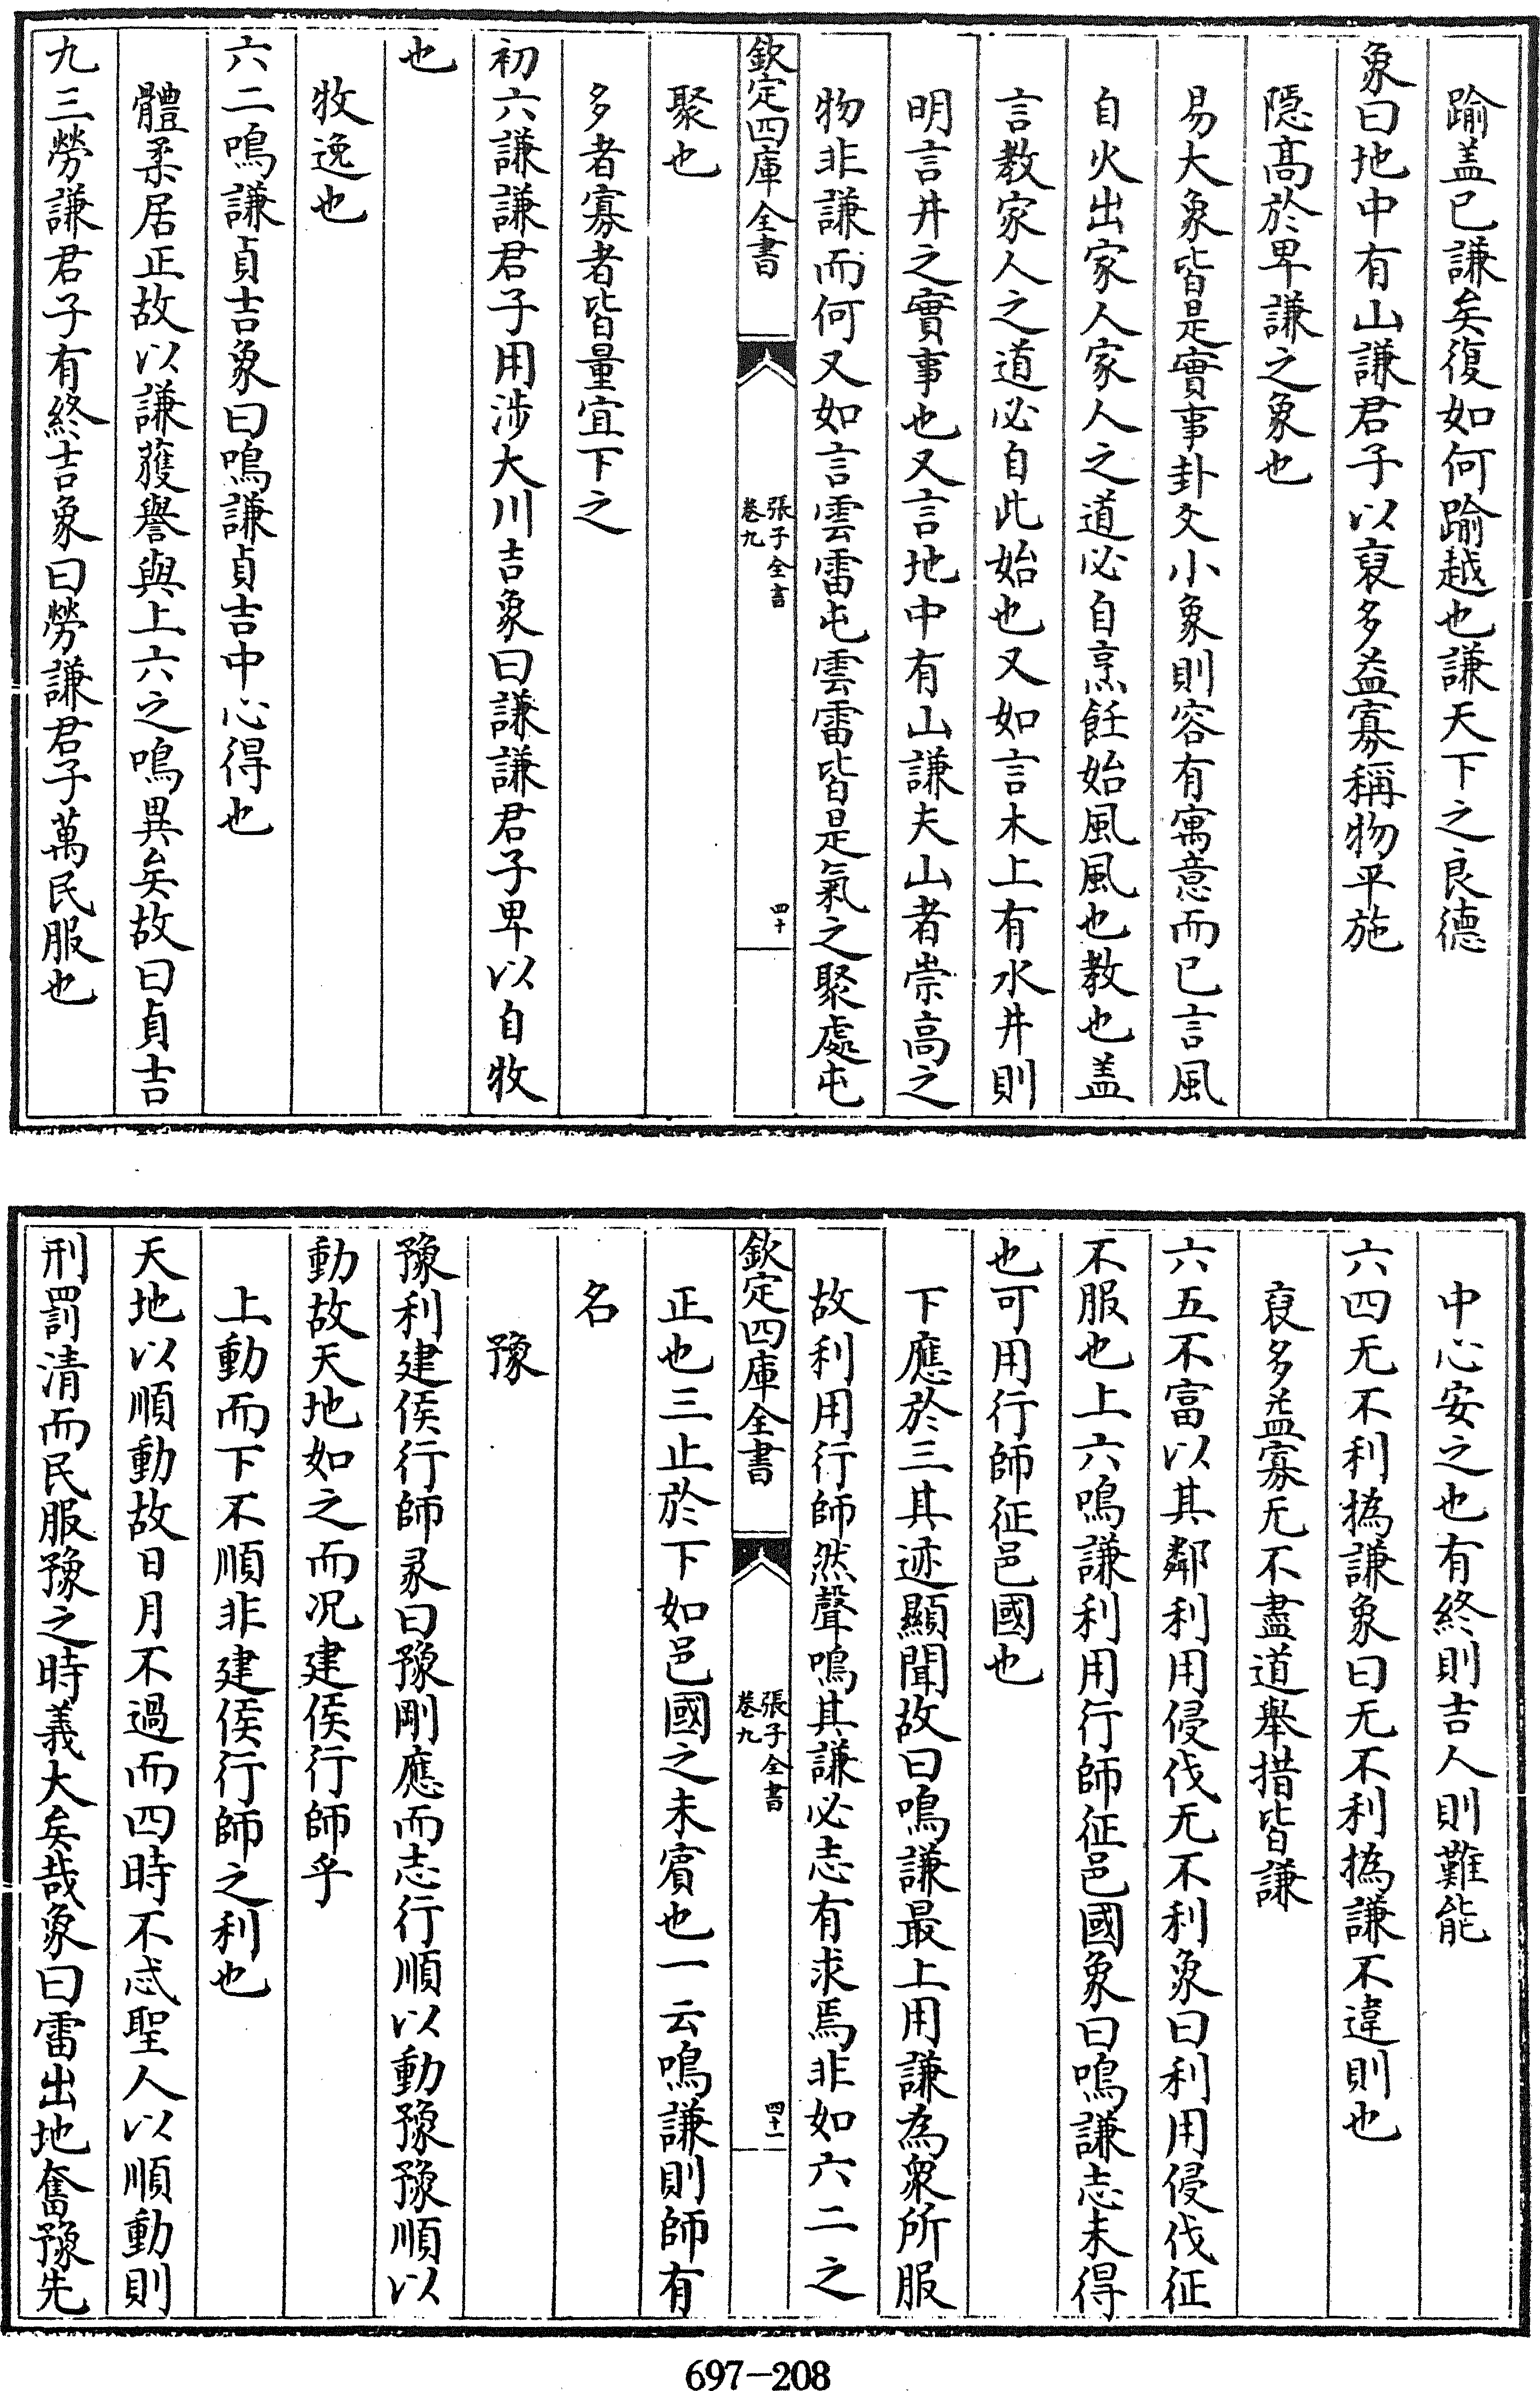 踰盖已謙矣復如何踰越也謙天下之良德
象曰地中有山謙君子以裒多益寡稱物平施
隠髙於卑謙之象也
易大象皆是實事卦爻小象則容有寓意而已言風
自火出家人家人之道必自烹飪始風風也教也盖
言教家人之道必自此始也又如言木上有水井則
明言井之實事也又言地中有山謙夫山者崇高之
物非謙而何又如言雲雷屯雲雷皆是氣之聚處屯
欽定四庫全書
張子全書
卷九
四十
聚也
多者寡者皆量宜下之
初六謙謙君子用涉大川吉象曰謙謙君子卑以自牧
也
牧逸也
六二鳴謙貞吉象曰鳴謙貞吉中心得也
體柔居正故以謙獲譽與上六之鳴異矣故曰貞吉
九三勞謙君子有終吉象曰勞謙君子萬民服也
中心安之也有終則吉人則難能
六四无不利撝謙象曰无不利撝謙不違則也
裒多益寡无不盡道舉措皆謙
六五不富以其鄰利用侵伐无不利象曰利用侵伐征
不服也上六鳴謙利用行師征邑國象曰鳴謙志未得
也可用行師征邑國也
下應於三其迹顯聞故曰鳴謙最上用謙為衆所服
故利用行師然聲鳴其謙必志有求焉非如六二之
欽定四庫全書
張子全書
卷九
四十一
正也三止於下如邑國之未賔也一云鳴謙則師有
名
豫
豫利建侯行師彖曰豫剛應而志行順以動豫豫順以
動故天地如之而况建侯行師乎
上動而下不順非建侯行師之利也
天地以順動故日月不過而四時不忒聖人以順動則
刑罰清而民服豫之時義大矣哉象曰雷出地奮豫先
697-208